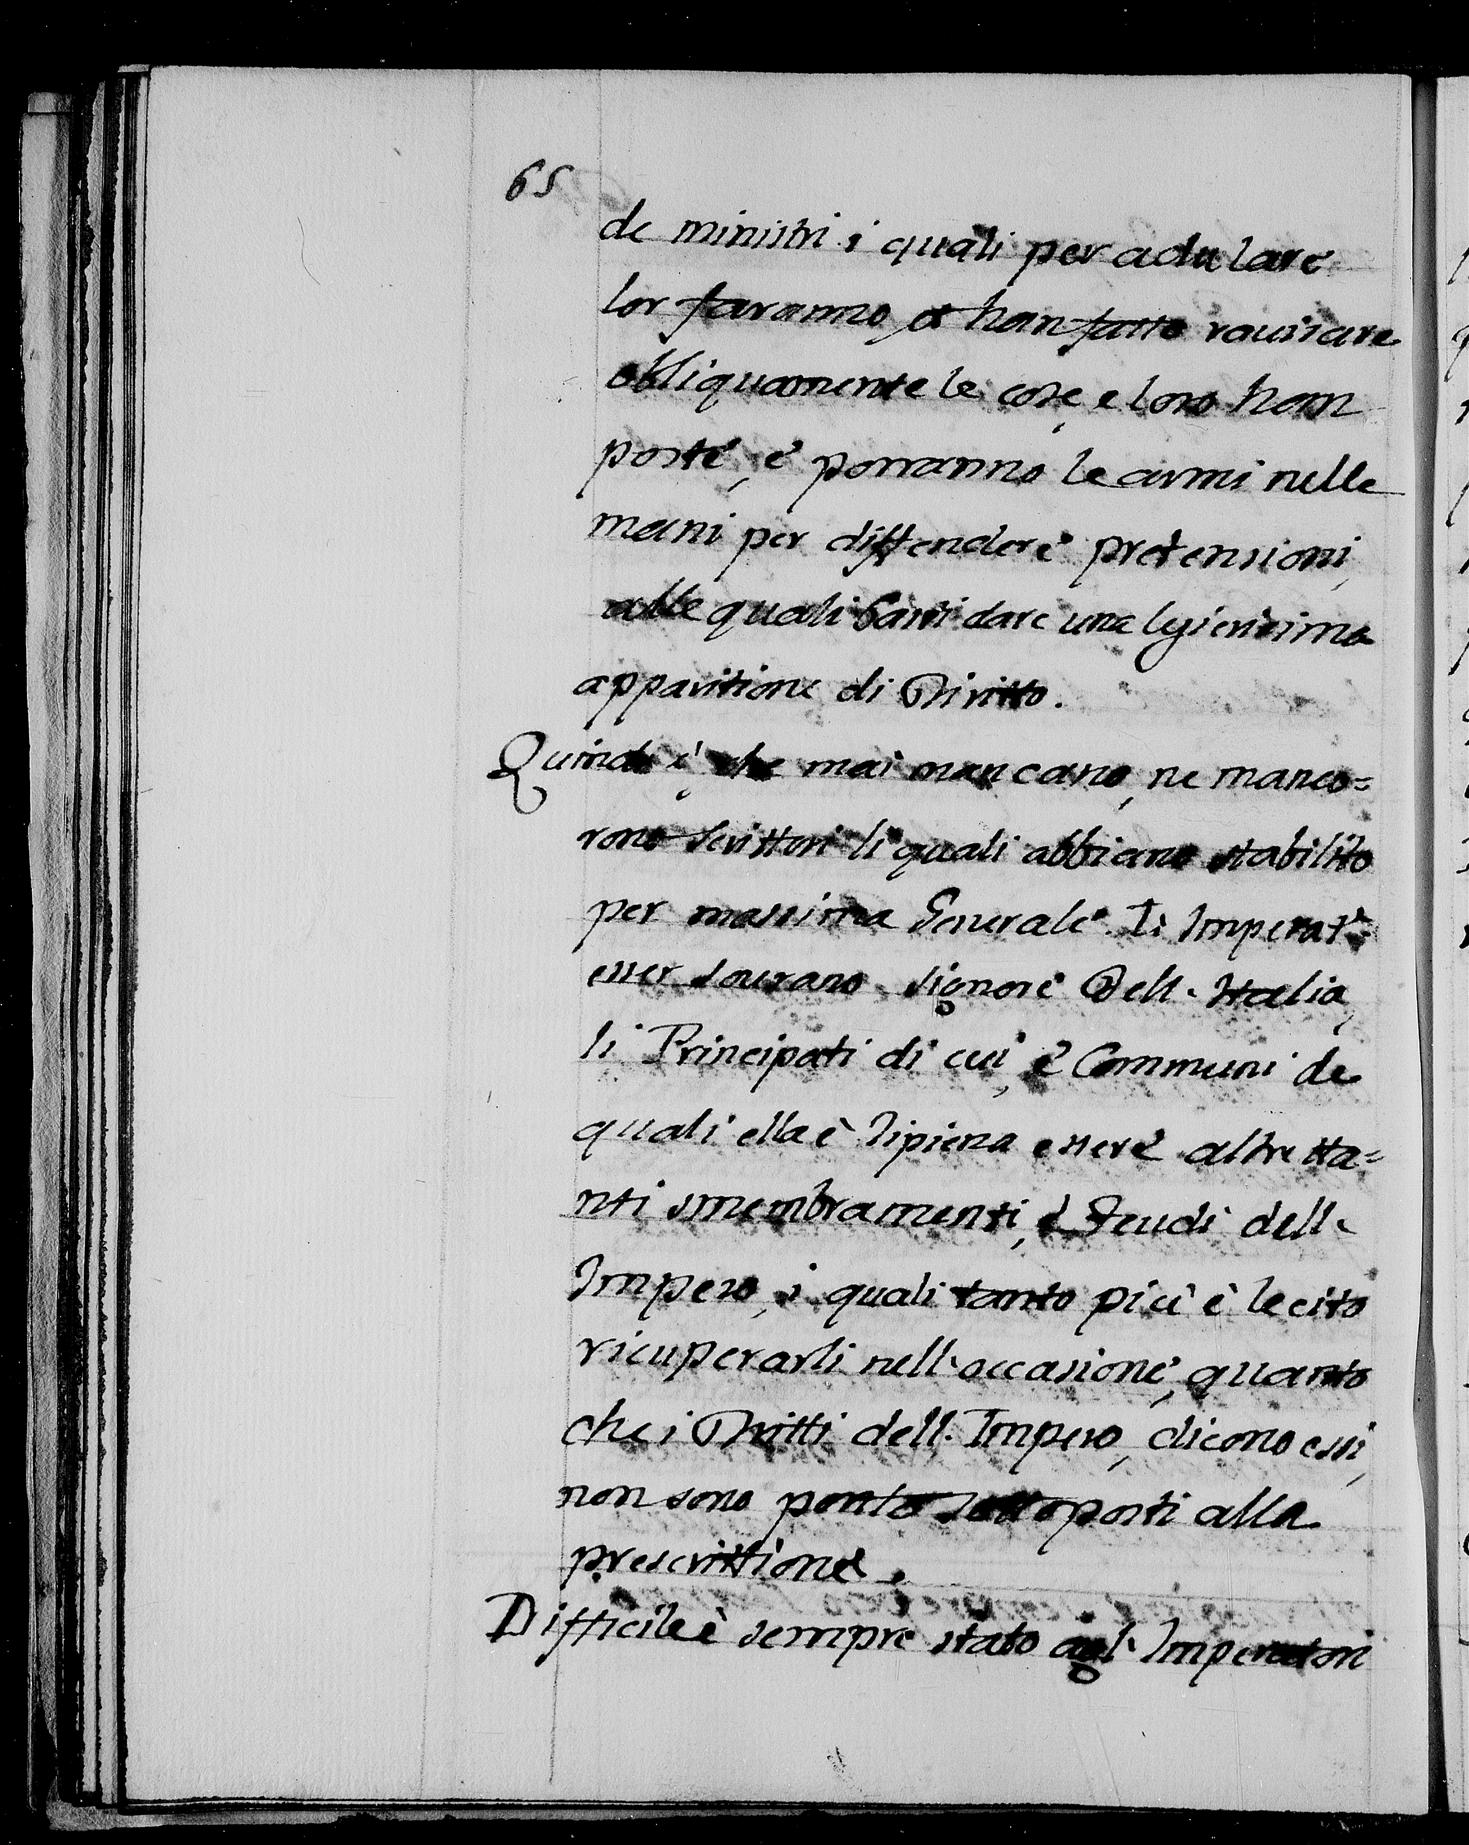 65
de ministri i quali per adulare
lor faranno, et han fatto rauisare
obliquamente le cose, e loro han
poste, e porranno le armi nelle
mani per diffendere pretensioni,
alle quali basti dare una legierissima
apparitione di Diritto.
Quindi è, che mai mancano, ne manco=
rono scrittori li quali abbiano stabilito
per massima Generale. Li Imperat.
esser sourano signore Dell'Italia,
li Principati di cui, e Communi de
quali ella è ripiena essere altretta=
nti smembramenti, e Feudi dell'
Impero, i quali tanto più è lecito
ricuperarli nell'occasione, quanto
che i Dritti dell'Impero, dicono essi,
non sono ponto sottoposti alla
prescrittione.
Difficile è sempre stato agl'Imperatori